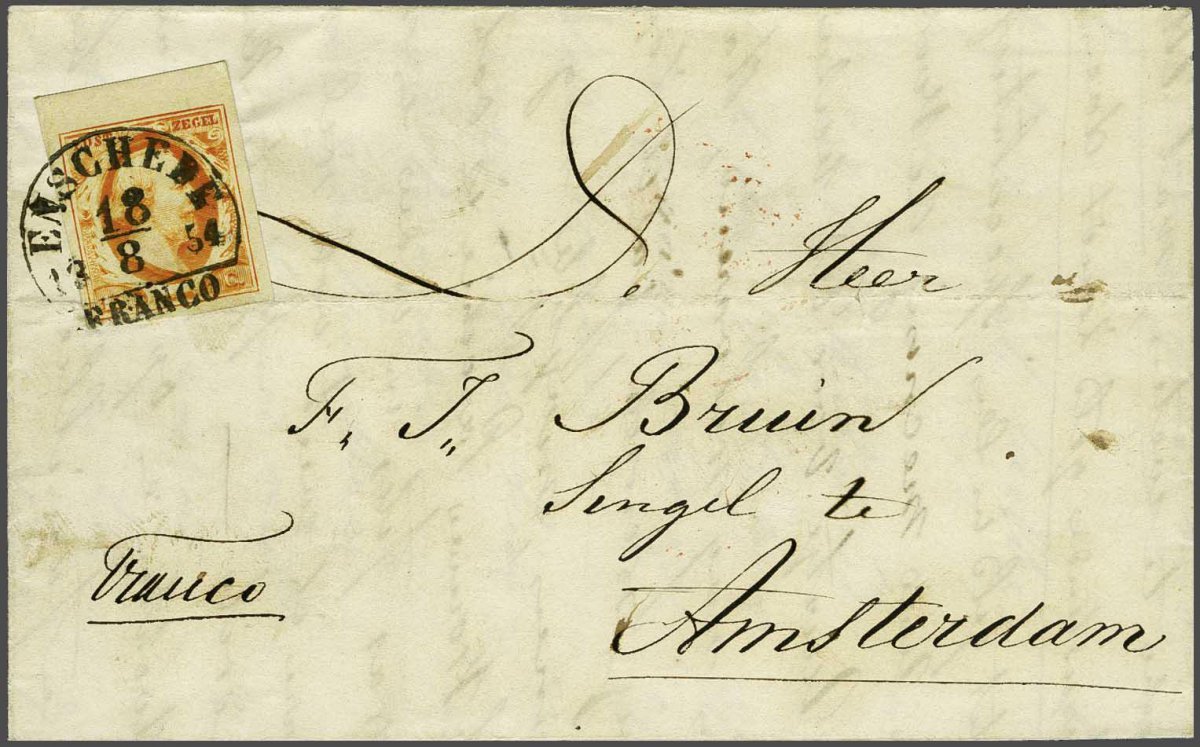 ZEGEL
ENSCHEDE
18
8
54
FRANCO
De Heer
F. J. Bruin
Singel te
Amsterdam
Franco